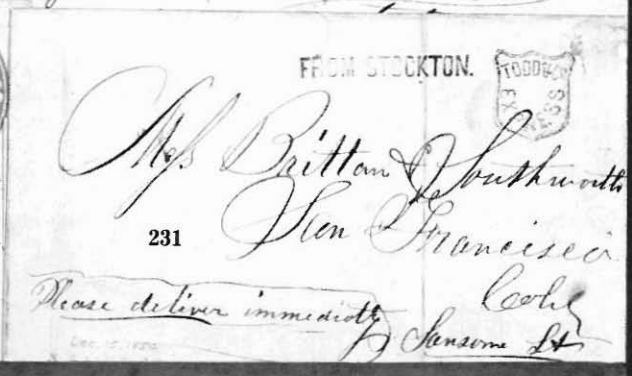 FROM STOCKTON.
TODD & CO
EXPRESS
Mess Brittan & Southworth
San Francisco
231
Cala
Please deliver immediatly
Sansome St
Dec. 15, 1852